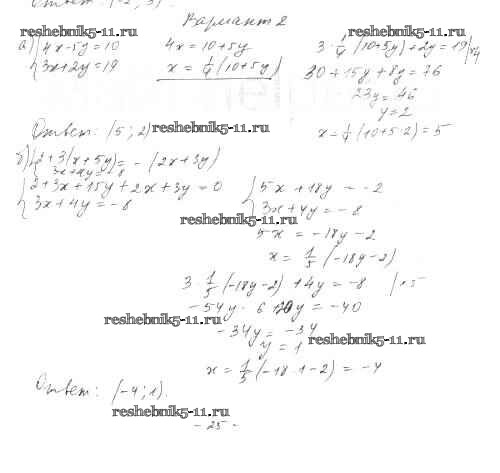 Ответ: (-2; 3).
Вариант 2
reshebnik5-11.ru reshebnik5-11.ru reshebnik5-11.ru
а) { 4x-5y=10
3x+2y=19
4x=10+5y
x = 1/4 (10+5y)
3·1/4 (10+5y)+2y=19 |×4
30+15y+8y=76
23y=46
y=2
x=1/4(10+5·2)=5
Ответ: (5; 2)
reshebnik5-11.ru
б) { 2+3(x+5y)= -(2x+3y)
3x+4y=-8
{ 2+3x+15y+2x+3y=0
3x+4y=-8
{ 5x+18y=-2
3x+4y=-8
reshebnik5-11.ru
5x = -18y-2
x = 1/5 (-18y-2)
3·1/5 (-18y-2)+4y=-8 |·5
-54y-6+20y=-40
reshebnik5-11.ru
-34y=-34
reshebnik5-11.ru
y=1
x=1/5(-18·1-2)=-4
Ответ: (-4; 1).
reshebnik5-11.ru
- 25 -